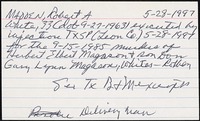 MADDEN, Robert A 5-28-1997
White, 33 (dob 9-27-1963) executed by
injection TXSP (Leon Co) 5-28-1997
for the 9-15-1985 murders of
Herbert Elbert Megason & son Don
Gary Lynn Megason, Whites - Robbery
See Tx B4
Delivery man